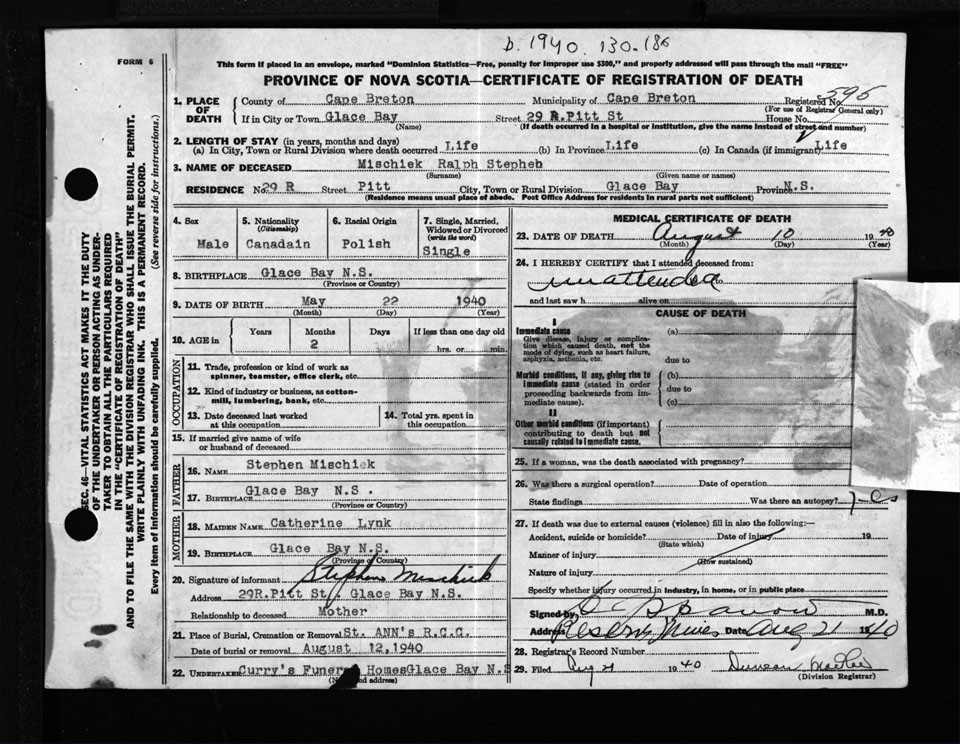 b. 1940. 130.186
FORM 6
This form if placed in an envelope, marked "Dominion Statistics—Free, penalty for improper use $300," and properly addressed will pass through the mail "FREE"
PROVINCE OF NOVA SCOTIA—CERTIFICATE OF REGISTRATION OF DEATH
1. PLACE OF DEATH County of Cape Breton Municipality of Cape Breton Registered No. 595
(For use of Registrar General only)
If in City or Town Glace Bay Street 29 R.Pitt St House No.
(Name) (If death occurred in a hospital or institution, give the name instead of street and number)
2. LENGTH OF STAY (in years, months and days)
(a) In City, Town or Rural Division where death occurred Life (b) In Province Life (c) In Canada (if immigrant) Life
3. NAME OF DECEASED Mischiek Ralph Stepheh
(Surname) (Given name or names)
RESIDENCE No. 29 R Street Pitt City, Town or Rural Division Glace Bay Province N.S.
(Residence means usual place of abode. Post Office Address for residents in rural parts not sufficient)
4. Sex Male
5. Nationality (Citizenship) Canadain
6. Racial Origin Polish
7. Single, Married, Widowed or Divorced (write the word) Single
8. BIRTHPLACE Glace Bay N.S.
(Province or Country)
9. DATE OF BIRTH May 22 1940
(Month) (Day) (Year)
10. AGE in Years Months 2 Days If less than one day old hrs. or min.
OCCUPATION
11. Trade, profession or kind of work as spinner, teamster, office clerk, etc.
12. Kind of industry or business, as cotton-mill, lumbering, bank, etc.
13. Date deceased last worked at this occupation
14. Total yrs. spent in this occupation
15. If married give name of wife or husband of deceased
FATHER
16. NAME Stephen Mischiek
17. BIRTHPLACE Glace Bay N.S .
(Province or Country)
MOTHER
18. MAIDEN NAME Catherine Lynk
19. BIRTHPLACE Glace Bay N.S.
(Province or Country)
20. Signature of informant Stephen Mischiek
Address 29R.Pitt St , Glace Bay N.S.
Relationship to deceased Mother
21. Place of Burial, Cremation or Removal St. ANN's R.C.C.
Date of burial or removal August 12,1940
22. UNDERTAKER Curry's Funeral Homes Glace Bay N.S
(Name and address)
MEDICAL CERTIFICATE OF DEATH
23. DATE OF DEATH August 10 1940
(Month) (Day) (Year)
24. I HEREBY CERTIFY that I attended deceased from:
unattended to
and last saw h alive on
CAUSE OF DEATH
I
Immediate cause (a)
Give disease, injury or complication which caused death, not the mode of dying, such as heart failure, asphyxia, asthenia, etc.
due to
Morbid conditions, if any, giving rise to immediate cause (stated in order proceeding backwards from immediate cause).
(b)
due to
(c)
II
Other morbid conditions (if important) contributing to death but not causally related to immediate cause.
25. If a woman, was the death associated with pregnancy?
26. Was there a surgical operation? Date of operation
State findings Was there an autopsy?
27. If death was due to external causes (violence) fill in also the following:—
Accident, suicide or homicide? Date of injury 19
(State which)
Manner of injury
(How sustained)
Nature of injury
Specify whether injury occurred in industry, in home, or in public place
Signed by M.D.
Address Reserve Mines Date Aug 21 1940
28. Registrar's Record Number
29. Filed Aug 21 1940 Duncan
(Division Registrar)
SEC. 46—VITAL STATISTICS ACT MAKES IT THE DUTY
OF THE UNDERTAKER OR PERSON ACTING AS UNDER-
TAKER TO OBTAIN ALL THE PARTICULARS REQUIRED
IN THE "CERTIFICATE OF REGISTRATION OF DEATH"
AND TO FILE THE SAME WITH THE DIVISION REGISTRAR WHO SHALL ISSUE THE BURIAL PERMIT.
WRITE PLAINLY WITH UNFADING INK. THIS IS A PERMANENT RECORD.
Every item of information should be carefully supplied. (See reverse side for instructions.)